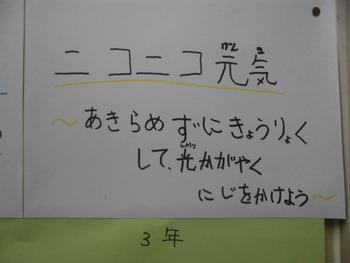 ニコニコ元気
～あきらめずにきょうりょく
して、光かがやく
にじをかけよう～
3年